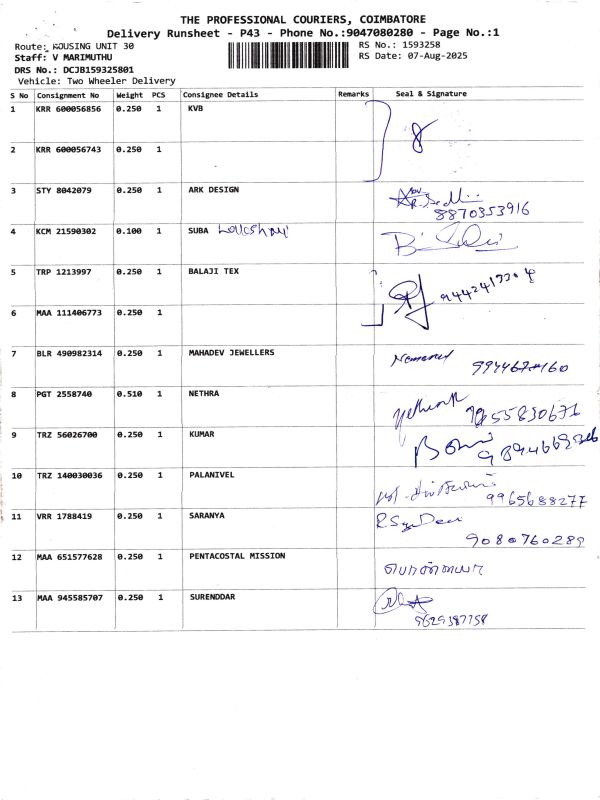 THE PROFESSIONAL COURIERS, COIMBATORE
Delivery Runsheet - P43 - Phone No.:9047080280 - Page No.:1
Route: HOUSING UNIT 30
RS No.: 1593258
Staff: V MARIMUTHU
RS Date: 07-Aug-2025
DRS No.: DCJB159325801
Vehicle: Two Wheeler Delivery
S No Consignment No Weight PCS Consignee Details Remarks Seal & Signature
1 KRR 600056856 0.250 1 KVB
2 KRR 600056743 0.250 1
3 STY 8042079 0.250 1 ARK DESIGN
8870353916
4 KCM 21590302 0.100 1 SUBA
5 TRP 1213997 0.250 1 BALAJI TEX
6 MAA 111406773 0.250 1
7 BLR 490982314 0.250 1 MAHADEV JEWELLERS
8 PGT 2558740 0.510 1 NETHRA
9 TRZ 56026700 0.250 1 KUMAR
10 TRZ 140030036 0.250 1 PALANIVEL
9965688277
11 VRR 1788419 0.250 1 SARANYA
9080760289
12 MAA 651577628 0.250 1 PENTACOSTAL MISSION
13 MAA 945585707 0.250 1 SURENDDAR
9629387758